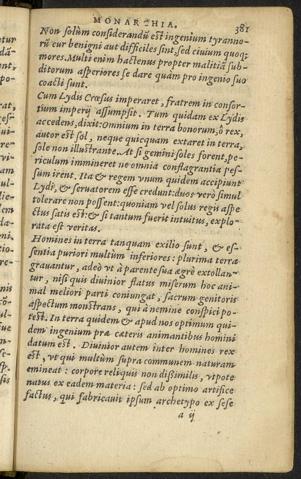 MONARCHIA. 381
Non solùm considerandũ est ingenium tyranno-
rũ eur benigni aut difficiles sint, sed ciuium quoq;
mores. Multi enim hactenus propter malitiã sub-
ditorum asperiores se dare quàm pro ingenio suo
coacti sunt.
Cum Lydis Crœsus imperaret, fratrem in consor-
tium imperij assumpsit. Tum quidam ex Lydis
accedens, dixit: Omnium in terra bonorum, ô rex,
autor est sol, neque quicquam extaret in terra,
sole non illustrante. At si gemini soles forent, pe-
riculum immineret ne omnia conflagrantia pes-
sum irent. Ita & regem vnum quidem accipiunt
Lydi, & seruatorem esse credunt: duos verò simul
tolerare non possent: quoniam vel solus regis aspe-
ctus satis est: & si tantum fuerit intuitus, explo-
rata est veritas.
Homines in terra tanquam exilio sunt, & es-
sentia puriori multùm inferiores: plurima terra
grauantur, adeò vt à parente sua ægrè extollan-
tur, nisi quis diuinior flatus miserum hoc ani-
mal meliori parti coniungat, sacrum genitoris
aspectum monstrans, qui à nemine conspici po-
test. In terra quidem & apud nos optimum qui-
dem ingenium præ cæteris animantibus homini
datum est. Diuinior autem inter homines rex
est, vt qui multùm supra communem naturam
emineat: corpore reliquis non dißimilis, vtpote
natus ex eadem materia: sed ab optimo artifice
factus, qui fabricauit ipsum archetypo ex sese
a ij